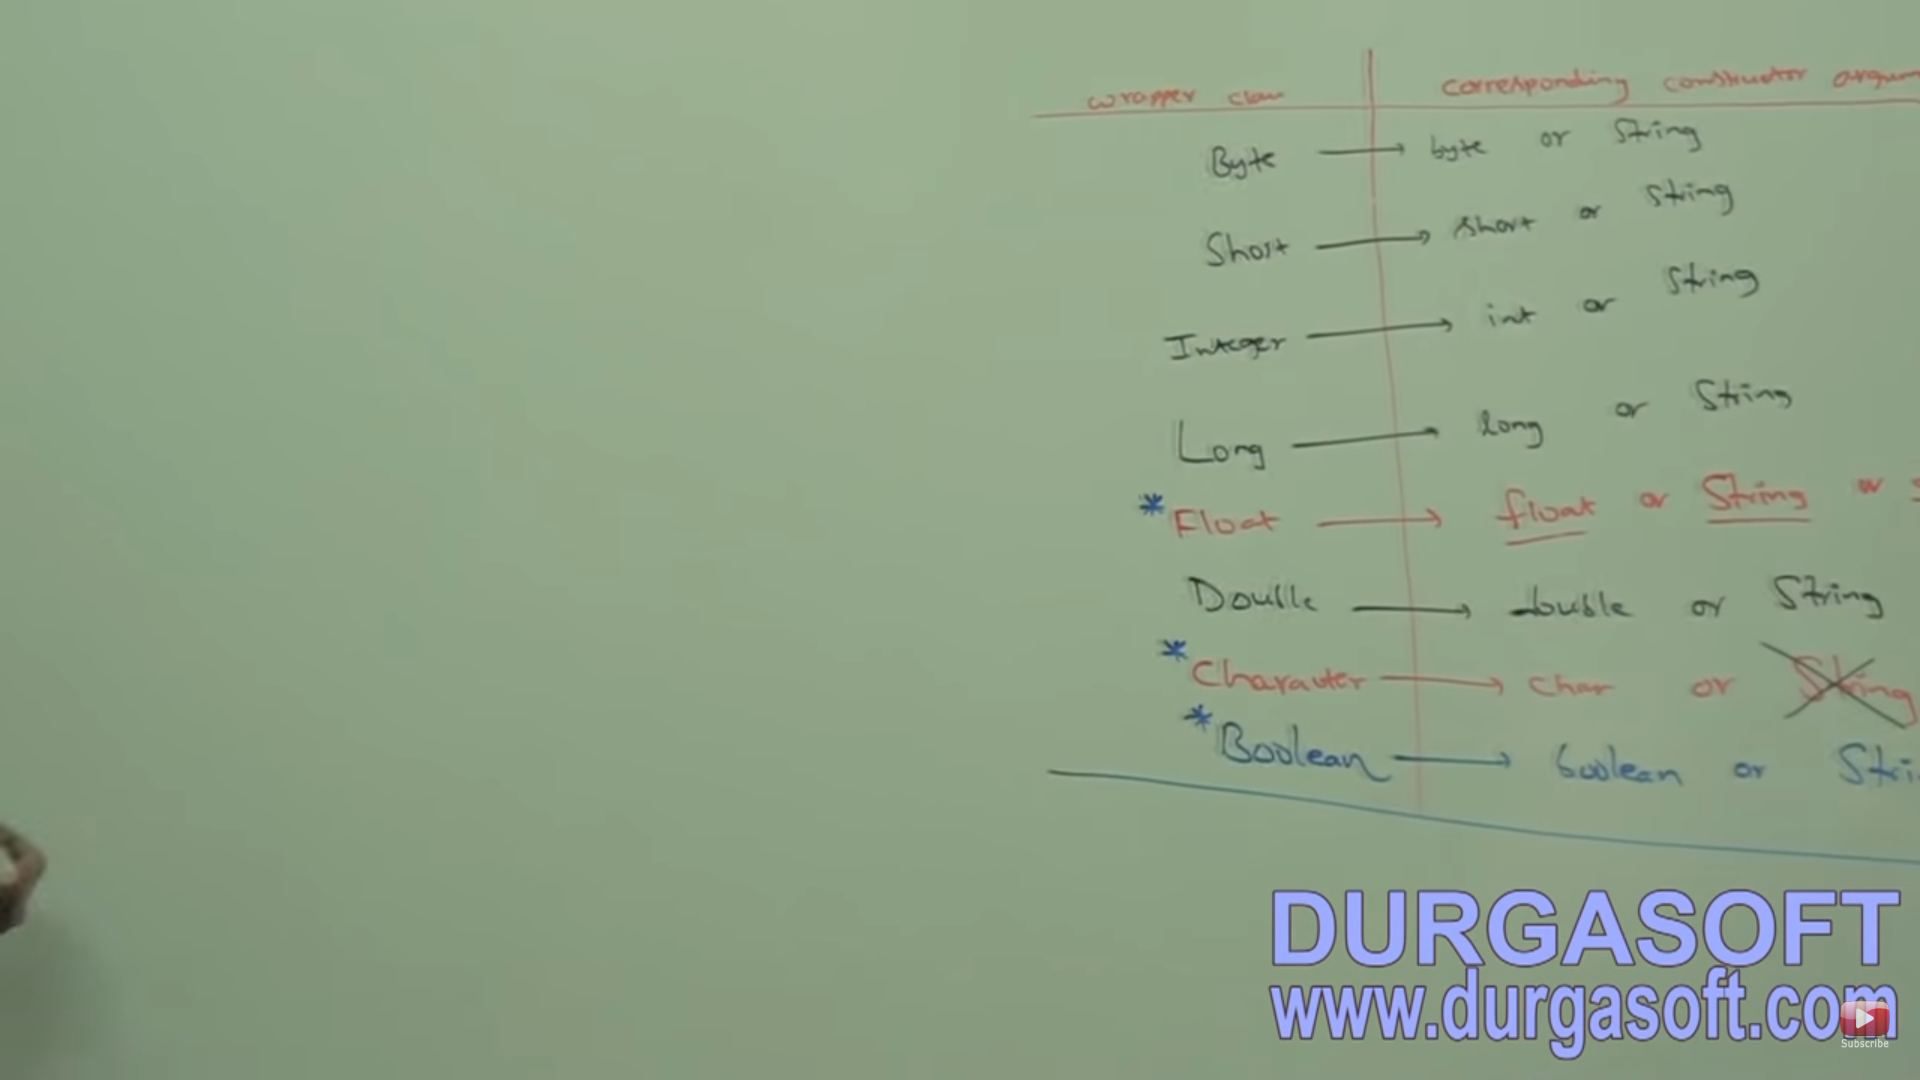 wrapper class corresponding constructor argum
Byte → byte or String
Short → short or String
Integer → int or String
Long → long or String
* Float → float or String or
Double → double or String
* Character → char or String
* Boolean → boolean or Stri
DURGASOFT
www.durgasoft.com
Subscribe